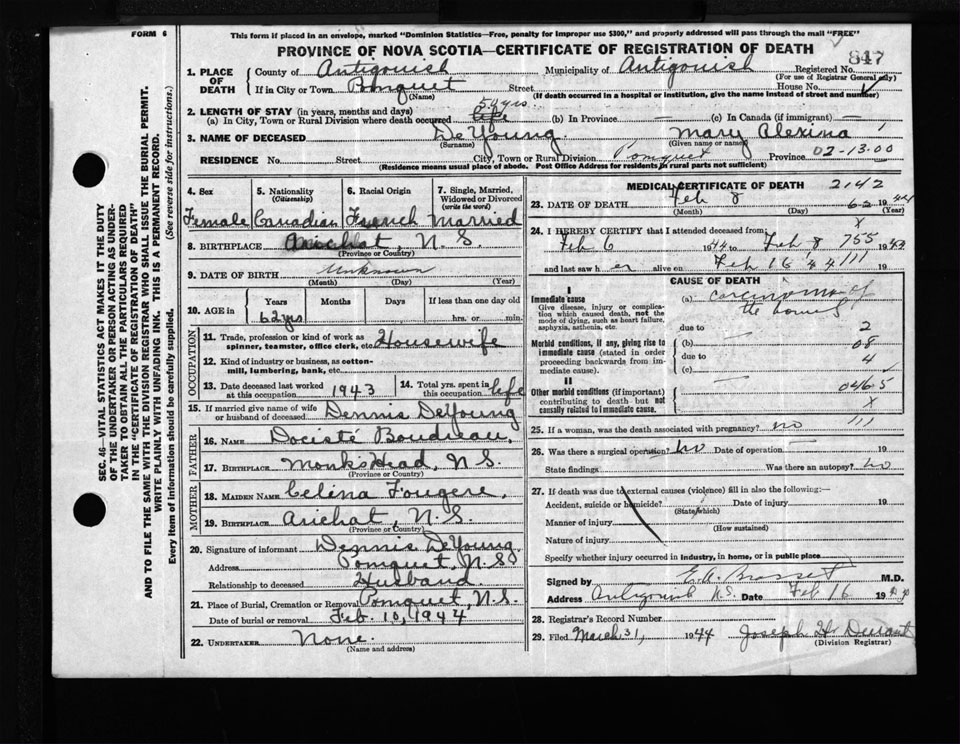 FORM 6
This form if placed in an envelope, marked "Dominion Statistics—Free, penalty for improper use $300," and properly addressed will pass through the mail "FREE"
PROVINCE OF NOVA SCOTIA—CERTIFICATE OF REGISTRATION OF DEATH
847
1. PLACE OF DEATH
County of Antigonish Municipality of Antigonish Registered No.
(For use of Registrar General only)
If in City or Town Pomquet Street House No.
(Name) (If death occurred in a hospital or institution, give the name instead of street and number)
2. LENGTH OF STAY (in years, months and days) 50 yrs
(a) In City, Town or Rural Division where death occurred life (b) In Province — (c) In Canada (if immigrant) —
3. NAME OF DECEASED DeYoung Mary Alexina
(Surname) (Given name or names)
RESIDENCE No. Street City, Town or Rural Division Pomquet Province 02-13.00
(Residence means usual place of abode. Post Office Address for residents in rural parts not sufficient)
4. Sex Female
5. Nationality (Citizenship) Canadian
6. Racial Origin French
7. Single, Married, Widowed or Divorced (write the word) Married
8. BIRTHPLACE Arichat, N.S.
(Province or Country)
9. DATE OF BIRTH Unknown
(Month) (Day) (Year)
10. AGE in Years Months Days If less than one day old
62 yrs hrs. or min.
OCCUPATION
11. Trade, profession or kind of work as spinner, teamster, office clerk, etc. Housewife
12. Kind of industry or business, as cotton-mill, lumbering, bank, etc.
13. Date deceased last worked at this occupation 1943
14. Total yrs. spent in this occupation life
15. If married give name of wife or husband of deceased Dennis DeYoung
FATHER
16. NAME Docisté Boudreau,
17. BIRTHPLACE Monk's Head, N.S.
(Province or Country)
MOTHER
18. MAIDEN NAME Celina Fougere,
19. BIRTHPLACE Arichat, N.S.
(Province or Country)
20. Signature of informant Dennis DeYoung
Address Pomquet, N.S.
Relationship to deceased Husband.
21. Place of Burial, Cremation or Removal Pomquet, N.S.
Date of burial or removal Feb. 10, 1944
22. UNDERTAKER None.
(Name and address)
MEDICAL CERTIFICATE OF DEATH 2142
23. DATE OF DEATH Feb 8 62 1944
(Month) (Day) (Year)
24. I HEREBY CERTIFY that I attended deceased from: X
Feb 6 1944 to Feb 8 755 1944
and last saw her alive on Feb 16 '44 111 19
CAUSE OF DEATH
I
Immediate cause
Give disease, injury or complication which caused death, not the mode of dying, such as heart failure, asphyxia, asthenia, etc.
(a) carcinoma of the bowel
due to 2
Morbid conditions, if any, giving rise to immediate cause (stated in order proceeding backwards from immediate cause).
(b) 08
due to 4
(c)
II
Other morbid conditions (if important) contributing to death but not causally related to immediate cause.
0465
X
25. If a woman, was the death associated with pregnancy? no 111
26. Was there a surgical operation? No Date of operation 19
State findings Was there an autopsy? No
27. If death was due to external causes (violence) fill in also the following:—
Accident, suicide or homicide? Date of injury 19
(State which)
Manner of injury
(How sustained)
Nature of injury
Specify whether injury occurred in industry, in home, or in public place
Signed by E.A. Brasset M.D.
Address Antigonish N.S. Date Feb 16 1944
28. Registrar's Record Number
29. Filed March 31, 1944 Joseph H. Durant
(Division Registrar)
SEC. 46—VITAL STATISTICS ACT MAKES IT THE DUTY OF THE UNDERTAKER OR PERSON ACTING AS UNDERTAKER TO OBTAIN ALL THE PARTICULARS REQUIRED IN THE "CERTIFICATE OF REGISTRATION OF DEATH" AND TO FILE THE SAME WITH THE DIVISION REGISTRAR WHO SHALL ISSUE THE BURIAL PERMIT.
WRITE PLAINLY WITH UNFADING INK. THIS IS A PERMANENT RECORD.
Every item of Information should be carefully supplied. (See reverse side for instructions.)